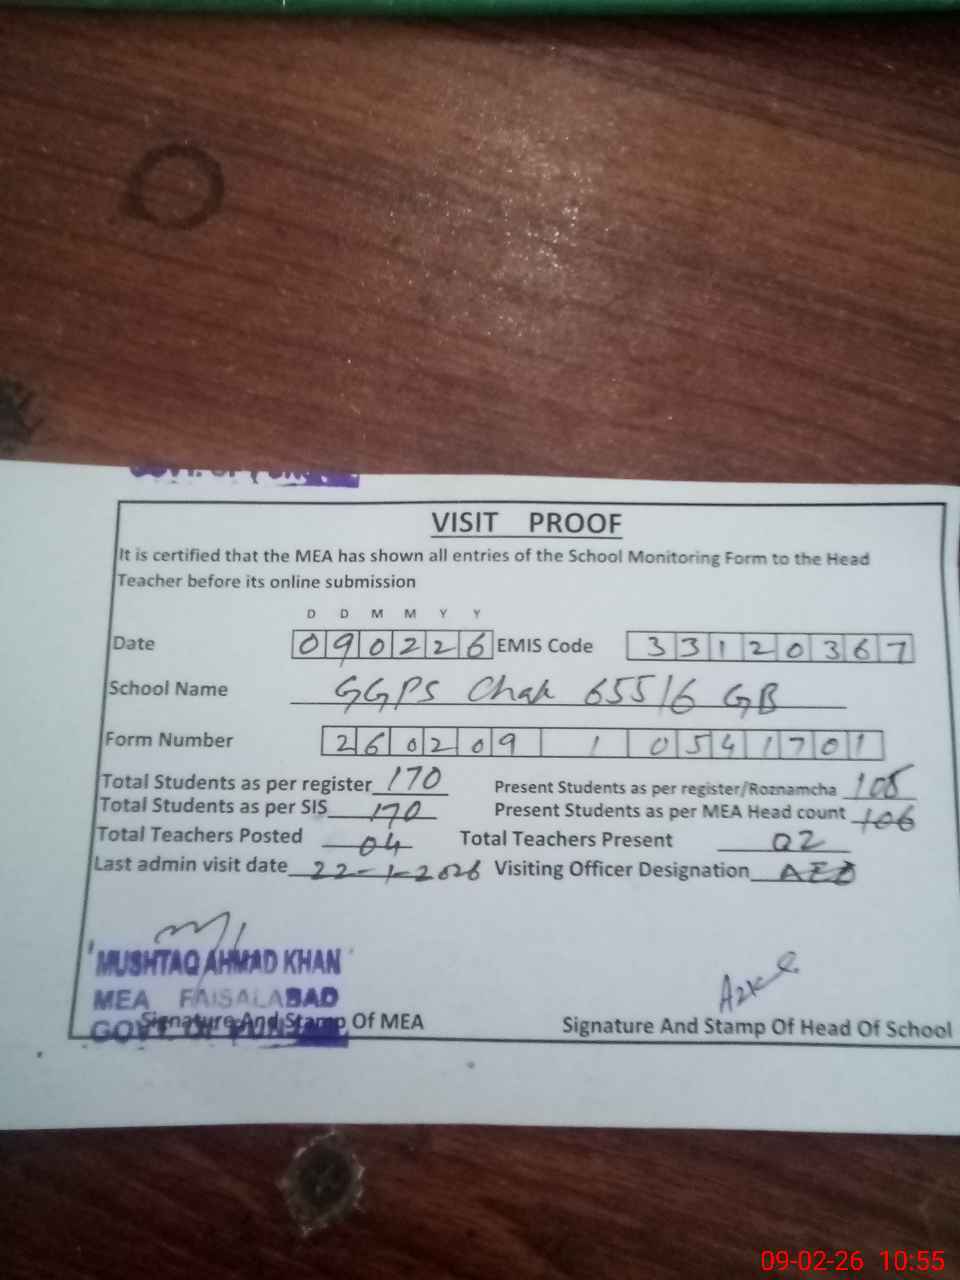 VISIT PROOF
It is certified that the MEA has shown all entries of the School Monitoring Form to the Head
Teacher before its online submission
D D M M Y Y
Date 090226 EMIS Code 33120367
School Name GGPS Chak 655/6 GB
Form Number 260209 1 0541701
Total Students as per register 170 Present Students as per register/Roznamcha
Total Students as per SIS 170 Present Students as per MEA Head count 106
Total Teachers Posted 04 Total Teachers Present 02
Last admin visit date 22-1-2026 Visiting Officer Designation AEO
MUSHTAQ AHMAD KHAN
MEA FAISALABAD
GOVT. OF
Signature And Stamp Of MEA Signature And Stamp Of Head Of School
09-02-26 10:55